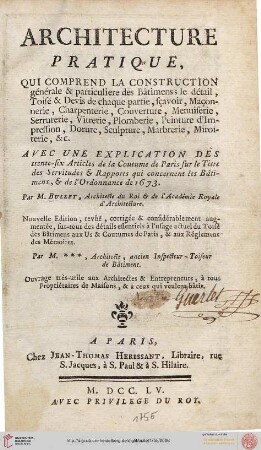 ARCHITECTURE
PRATIQUE,
QUI COMPREND LA CONSTRUCTION
générale & particuliere des Bâtimens; le détail,
Toisé & Devis de chaque partie, sçavoir, Maçon-
nerie, Charpenterie, Couverture, Menuiserie,
Serrurerie, Vitrerie, Plomberie, Peinture d'Im-
pression, Dorure, Sculpture, Marbrerie, Miroi-
terie, &c.
AVEC UNE EXPLICATION DES
trente-six Articles de la Coutume de Paris sur le Titre
des Servitudes & Rapports qui concernent les Bâti-
mens, & de l'Ordonnance de 1673.
Par M. BULLET, Architecte du Roi & de l'Académie Royale
d'Architecture.
Nouvelle Edition, revûë, corrigée & considérablement aug-
mentée, sur-tout des détails essentiels à l'usage actuel du Toisé
des Bâtimens aux Us & Coutumes de Paris, & aux Réglemens
des Mémoires.
Par M. ***, Architecte, ancien Inspecteur-Toiseur
de Bâtimens.
Ouvrage très-utile aux Architectes & Entrepreneurs, à tous
Propriétaires de Maisons, & à ceux qui veulent bâtir.
A PARIS,
Chez JEAN-THOMAS HERISSANT, Libraire, rue
S. Jacques, à S. Paul & à S. Hilaire.
M. DCC. LV.
AVEC PRIVILEGE DU ROY.